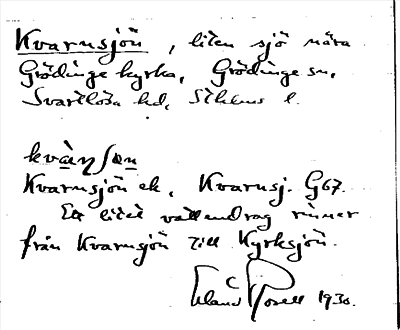 Kvarnsjön, liten sjö nära
Grödinge kyrka, Grödinge sn,
Svartlösa hd, Sthlms l.
kvàrnʃøn
Kvarnsjön ek, Kvarnsj. G67.
Ett litet vattendrag rinner
från Kvarnsjön till Kyrksjön.
Erland Rosell 1930.